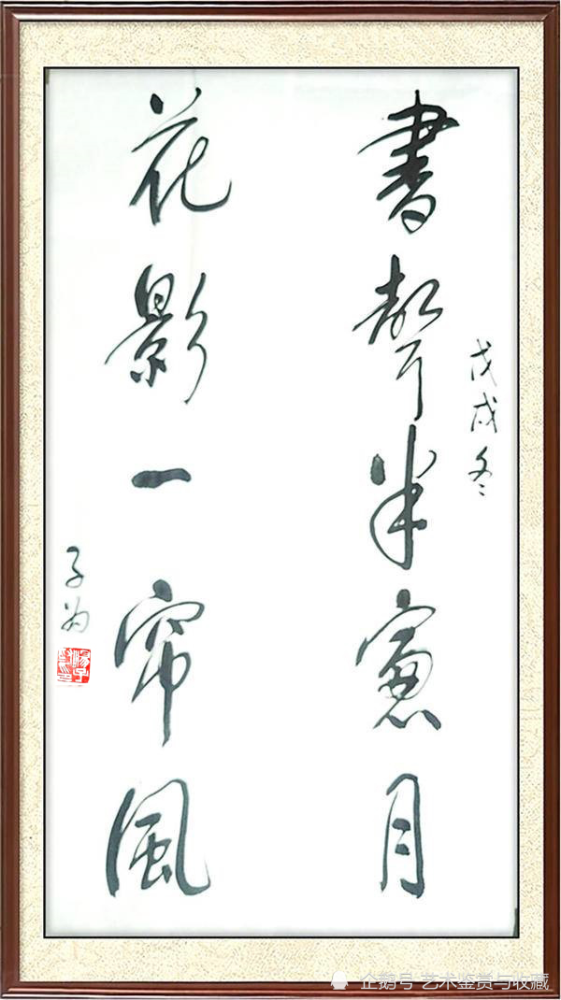 戊戌冬
書聲半窻月
花影一帘風
子为
企鹅号 艺术鉴赏与收藏